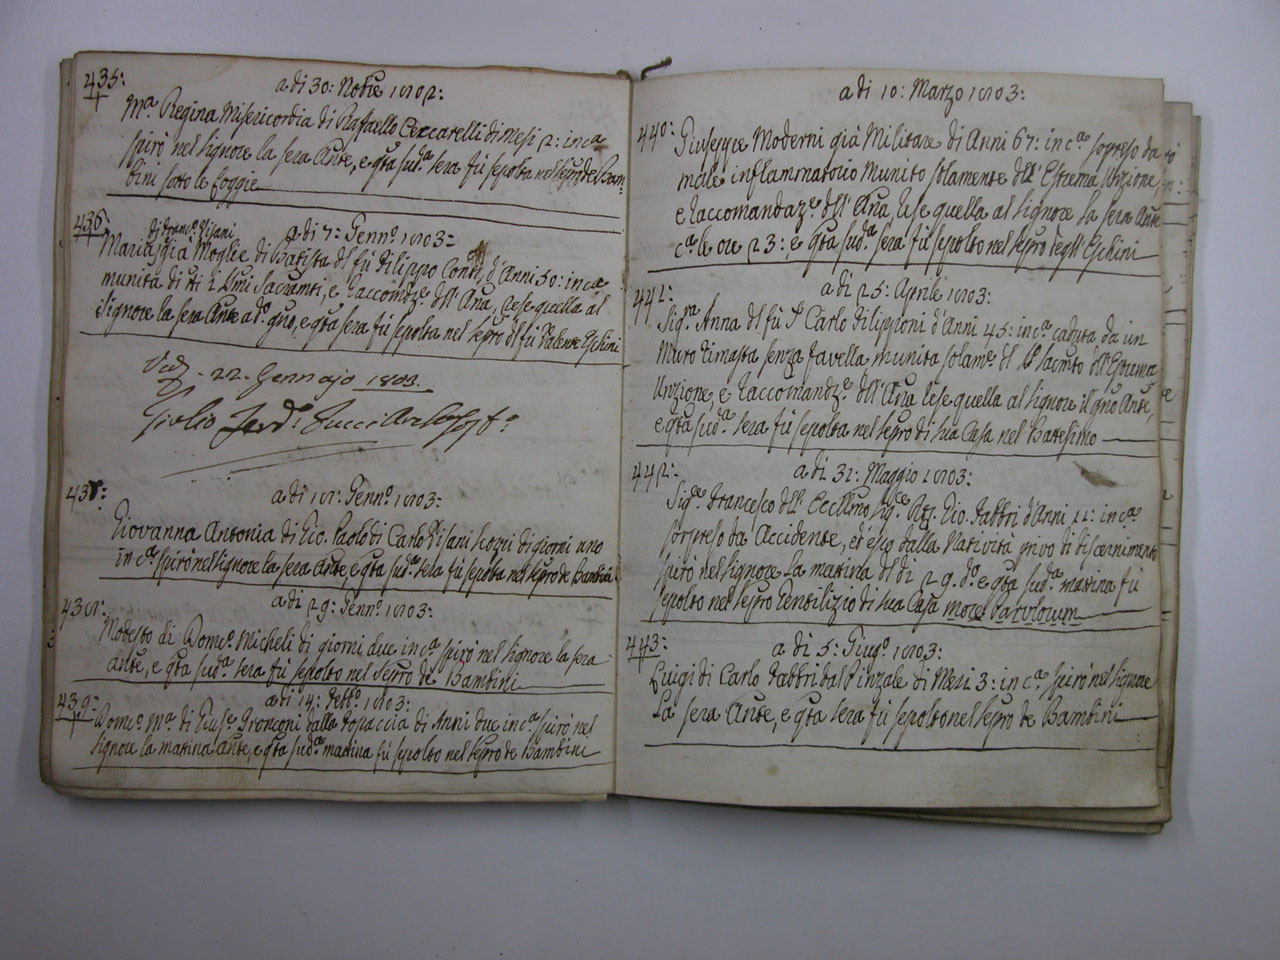 435:
a di 30: Nobre 1802:
Mª Regina Misericordia di Raffaello Ceccarelli di Mesi 2: in cª
spirò nel Signore la sera Ante, e qta sudª sera fù sepolta nel sepro de Bam=
bini sotto le loggie
436:
a di 7: Gennº 1803:
di Francº Pisani
Maria già Moglie di Batista del fù Filippo Conti d'Anni 50: in ca
munita di tti i SSmi Sacramti, e raccomdzª dell'Ana, rese quella al
Signore la sera Ante a dº quo, e qta sera fù sepolta nel sepro del fù Valente Eschini
22. Gennajo 1803.
437:
a di 18: Gennº 1803:
Giovanna Antonia di Gio. Paolo di Carlo Pisani Scozzi di giorni uno
in cª spirò nel Signore la sera Ante, e qta sudª sera fù sepolta nel sepro de Bambini
438:
a di 29: Gennº 1803:
Modesto di Domcº Micheli di giorni due in cª spirò nel Signore la sera
ante, e qta sudª sera fù sepolto nel sepro de Bambini
439:
a di 14: Febbº 1803:
Domcº Mª di Giuse Gronconi dalla Topaccia di Anni due in cª spirò nel
Signore la mattina Ante, e qta sudª mattina fù sepolto nel sepro de Bambini
a di 10: Marzo 1803:
440:
Giuseppe Moderni già Militare di Anni 67: in cª sopreso da
male inflammatorio munito solamente dell'Estrema Unzione,
e raccomandazº dell'Ana, rese quella al Signore la sera Ante
cª le ore 23: e qta sudª sera fù sepolto nel sepro degli Eschini
a di 25: Aprile 1803:
441:
Sigª Anna del fù Sr Carlo Filippioni d'Anni 45: in cª caduta da un
Muro rimasta senza favella, munita solame del Sº Sacmto dell'Estrema
Unzione, e raccomandzº dell'Ana rese quella al Signore il gno Ante,
e qta sudª sera fù sepolta nel sepro di sua Casa nel Battesimo
442:
a di 31: Maggio 1803:
Sige Francesco dell'Eccellmo Sige Gio. Fabbri d'Anni 11: in cª
sorpreso da Accidente, ed esso dalla Natività privo di discernimento
spirò nel Signore la mattina del di 29. do e qta sudª mattina fù
sepolto nel sepro Gentilizio di sua Casa more Parvulorum
443:
a di 5: Giugº 1803:
Luigi di Carlo Fabbri dal Pinzale di Mesi 3: in cª spirò nel Signore
La sera Ante, e qta sera fù sepolto nel sepro de Bambini